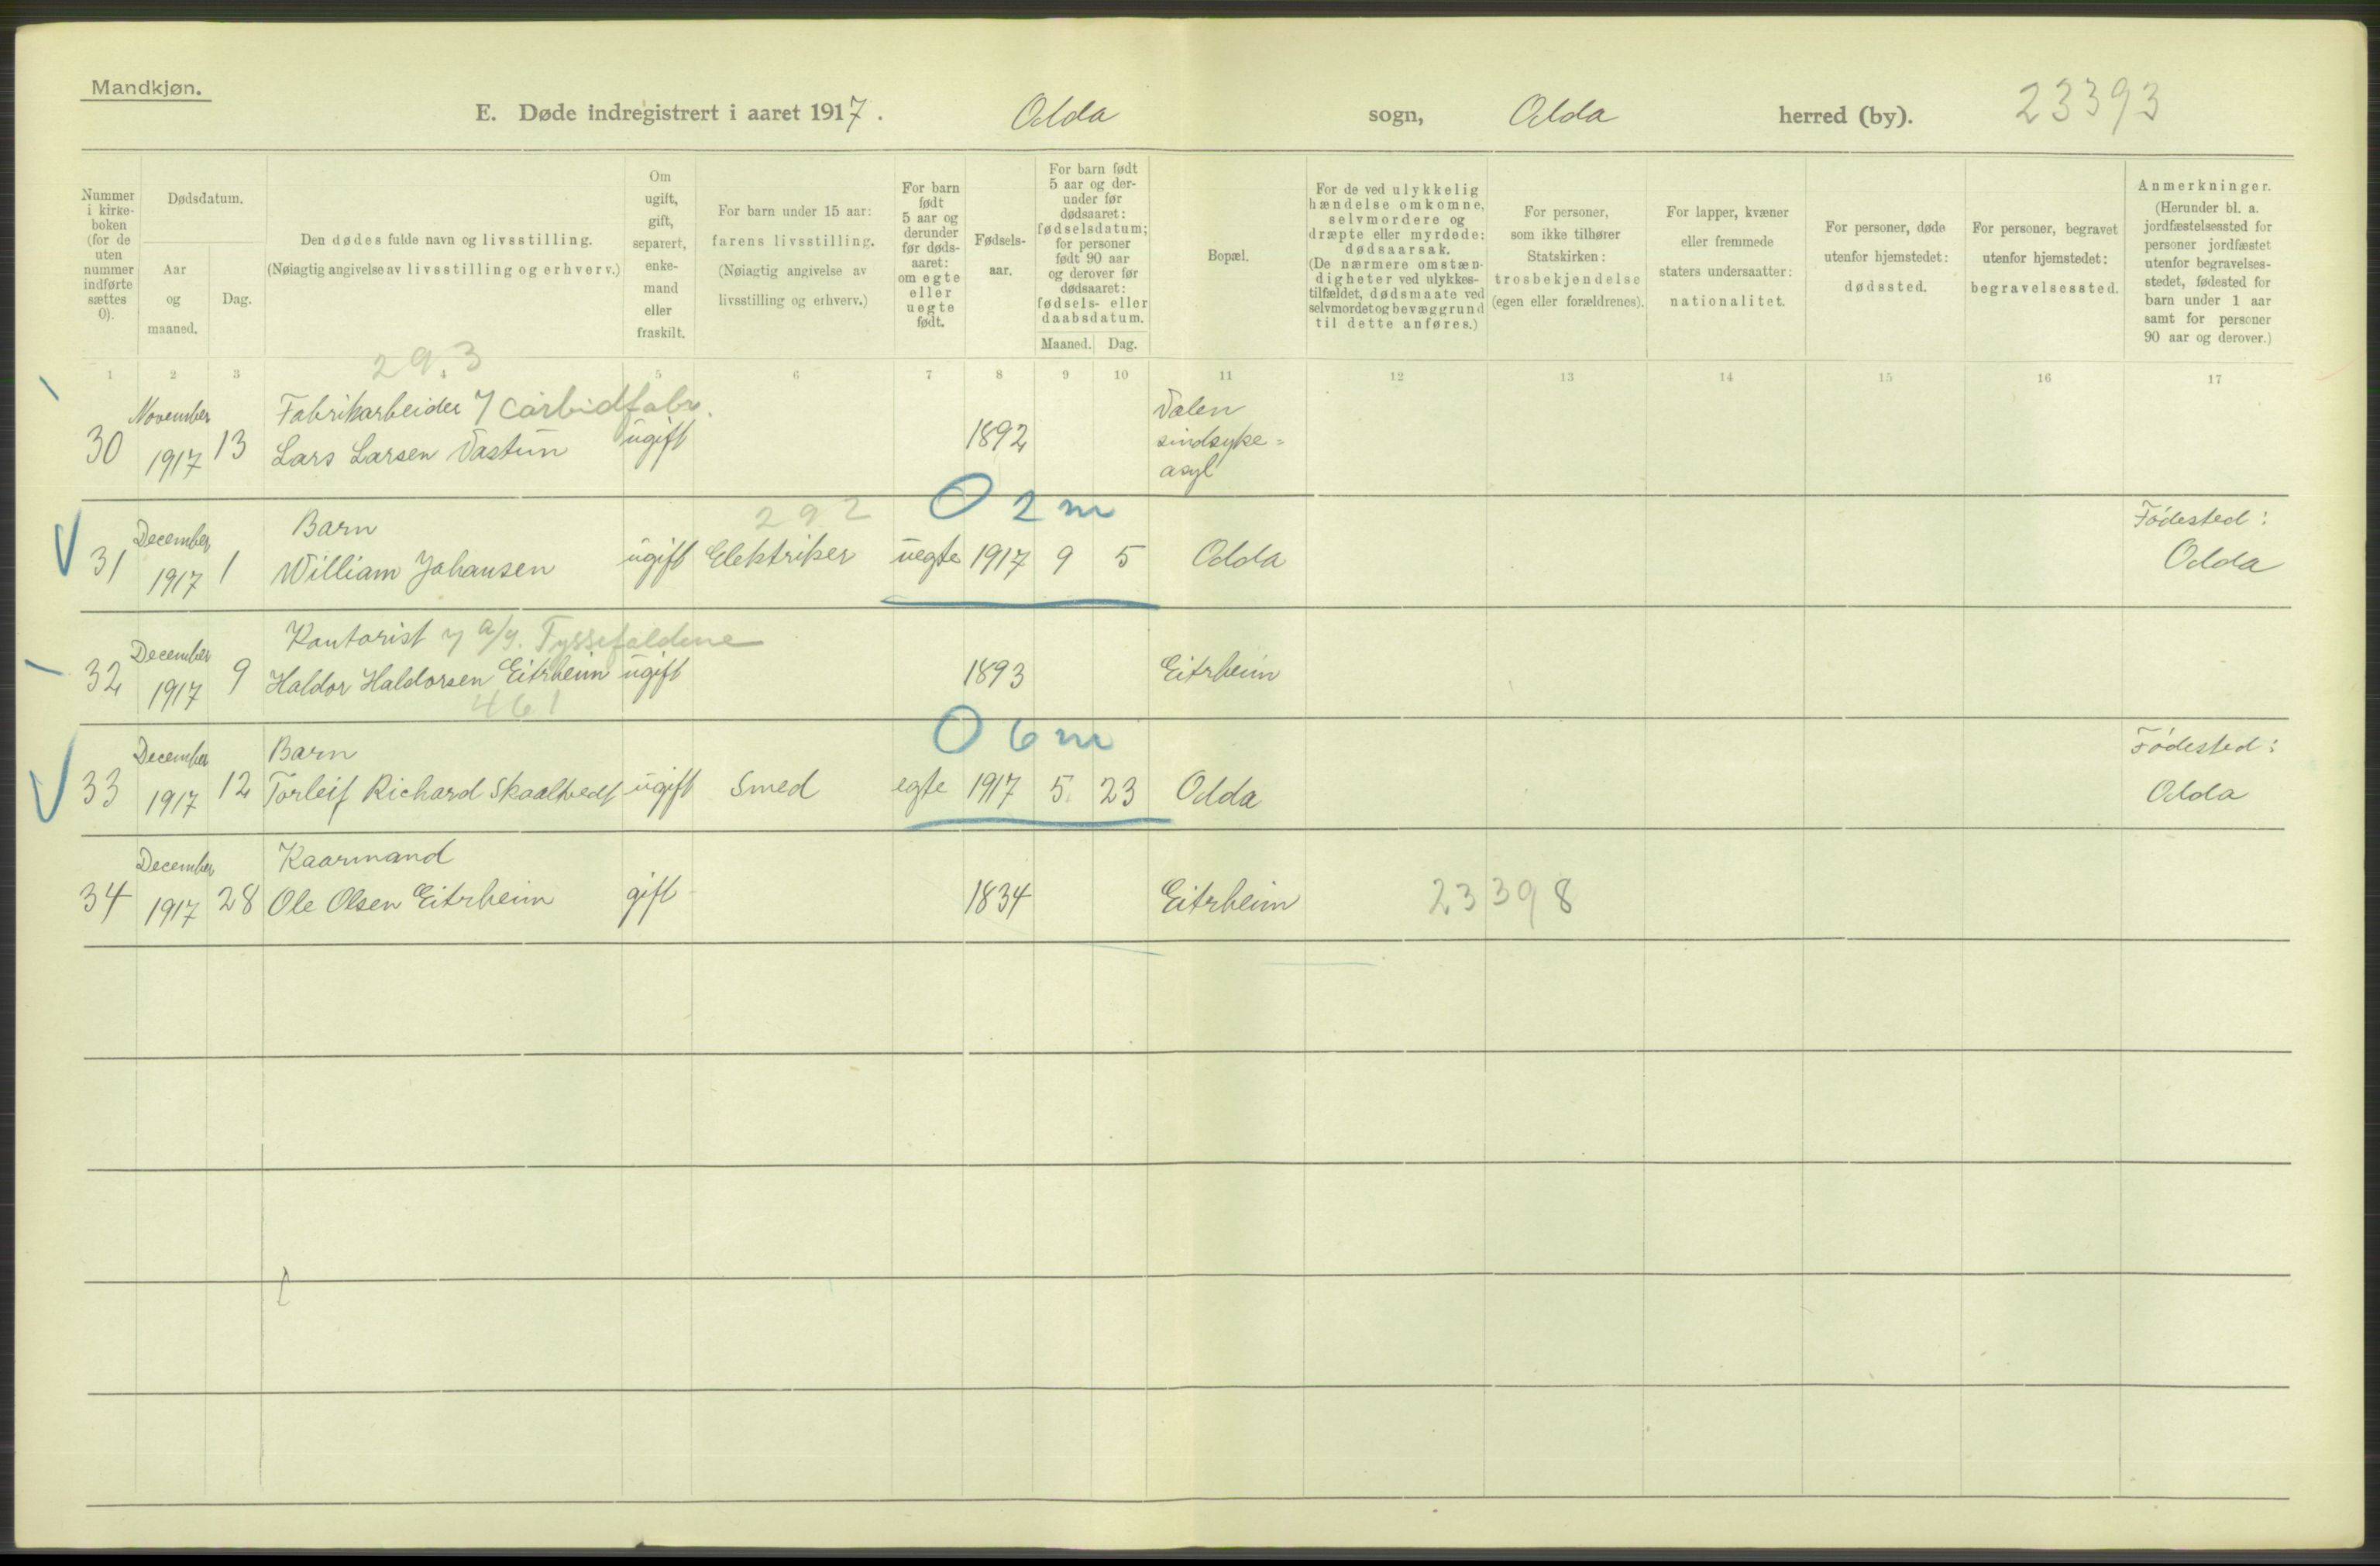 Mandkjøn.
E. Døde indregistrert i aaret 1917. Odda sogn, Odda herred (by). 23393
Nummer
i kirke-
boken
(for de
uten
nummer
indførte
sættes
0).
Dødsdatum.
Aar
og
maaned.
Dag.
Den dødes fulde navn og livsstilling.
(Nøiagtig angivelse av livsstilling og erhverv.)
Om
ugift,
gift,
separert,
enke-
mand
eller
fraskilt.
For barn under 15 aar:
farens livsstilling.
(Nøiagtig angivelse av
livsstilling og erhverv.)
For barn
født
5 aar og
derunder
før døds-
aaret:
om egte
eller
uegte
født.
Fødsels-
aar.
For barn født
5 aar og der-
under før
dødsaaret:
fødselsdatum;
for personer
født 90 aar
og derover før
dødsaaret:
fødsels- eller
daabsdatum.
Maaned. Dag.
Bopæl.
For de ved ulykkelig
hændelse omkomne,
selvmordere og
dræpte eller myrdede:
dødsaarsak.
(De nærmere omstæn-
digheter ved ulykkes-
tilfældet, dødsmaate ved
selvmordet og bevæggrund
til dette anføres.)
For personer,
som ikke tilhører
Statskirken:
trosbekjendelse
(egen eller forældrenes).
For lapper, kvæner
eller fremmede
staters undersaatter:
nationalitet.
For personer, døde
utenfor hjemstedet:
dødssted.
For personer, begravet
utenfor hjemstedet:
begravelsessted.
Anmerkninger.
(Herunder bl. a.
jordfæstelsessted for
personer jordfæstet
utenfor begravelses-
stedet, fødested for
barn under 1 aar
samt for personer
90 aar og derover.)
29.3
1 2 3 5 6 7 8 9 10 11 12 13 14 15 16 17
November Fabrikarbeider carbidfabr. Valen
30 1917 13 Lars Larsen Vastun ugift 1892 sindsyke=
asyl
292 0 2 m
December Barn Fødested:
31 1917 1 William Johansen ugift Elektriker uegte 1917 9 5 Odda Odda
December Kontorist a/s. Tyssefaldene
32 1917 9 Haldor Haldorsen Eitrheim ugift 1893 Eitrheim
461
0 6 m
December Barn Fødested:
33 1917 12 Torleif Richard Skaaltvedt ugift Smed egte 1917 5 23 Odda Odda
December Kaarmand
34 1917 28 Ole Olsen Eitrheim gift 1834 Eitrheim 23398